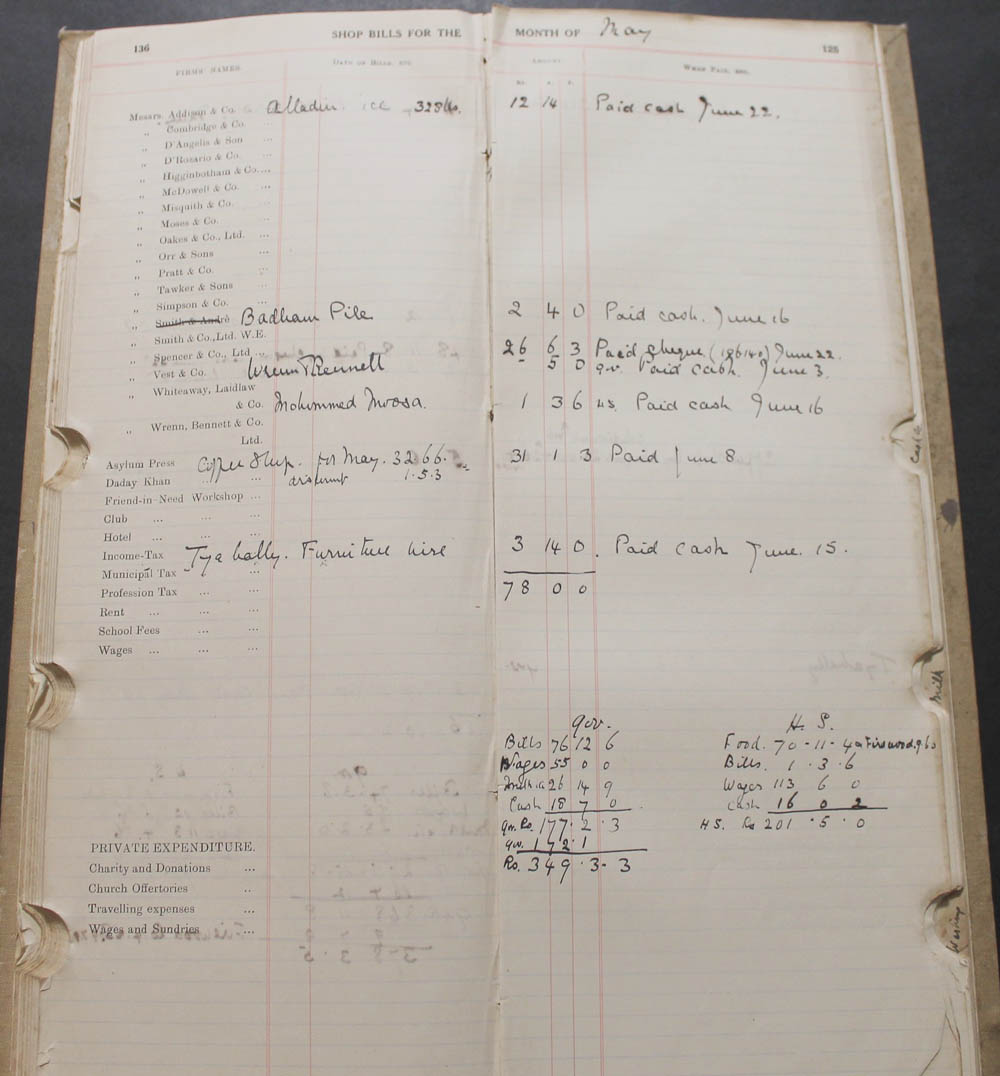 136 SHOP BILLS FOR THE MONTH OF May 125
FIRMS' NAMES. DATE OF BILLS, ETC. AMOUNT. WHEN PAID, ETC.
RS. A. P.
Messrs. Addison & Co. Alladin ice 328 lbs. 12 14 Paid cash June 22.
„ Combridge & Co. ...
„ D'Angelis & Son ...
„ D'Rozario & Co. ...
„ Higginbotham & Co. ...
„ McDowell & Co. ...
„ Misquith & Co. ...
„ Moses & Co. ...
„ Oakes & Co., Ltd. ...
„ Orr & Sons ...
„ Pratt & Co. ...
„ Tawker & Sons ...
„ Simpson & Co. ...
„ Smith & André Badham Pile 2 4 0 Paid cash. June 16
„ Smith & Co., Ltd. W.E.
„ Spencer & Co., Ltd ... 26 6 3 Paid cheque (186140) June 22.
„ Vest & Co. Wrenn Bennett 5 0 gv. Paid cash. June 3.
„ Whiteaway, Laidlaw
& Co. Mohummed Moosa. 1 3 6 HS. Paid cash June 16
„ Wrenn, Bennett & Co.
Ltd.
Asylum Press Coffee & Sup. for May. 32 6 6. 31 1 3 Paid June 8
Daday Khan ... discount 1.5.3
Friend-in-Need Workshop ...
Club ... ... ...
Hotel ... ... ...
Income-Tax Tyabally. Furniture hire 3 14 0. Paid cash June. 15.
Municipal Tax ...
78 0 0
Profession Tax ... ...
Rent ... ... ...
School Fees ... ...
Wages ... ... ...
gov. H. S.
Bills 76 12 6 Food. 70 - 11 - 4 Firewood. 9.6.0
Wages 55 0 0 Bills. 1 . 3 . 6
26 14 9 Wages 113 6 0
Cash 18 7 0 Cash 16 0 2
gv. Rs. 177. 2. 3 HS. Rs 201 . 5 . 0
gv. 172.1
Rs. 349. 3- 3
PRIVATE EXPENDITURE.
Charity and Donations ...
Church Offertories ..
Travelling expenses ...
Wages and Sundries ...
Milk